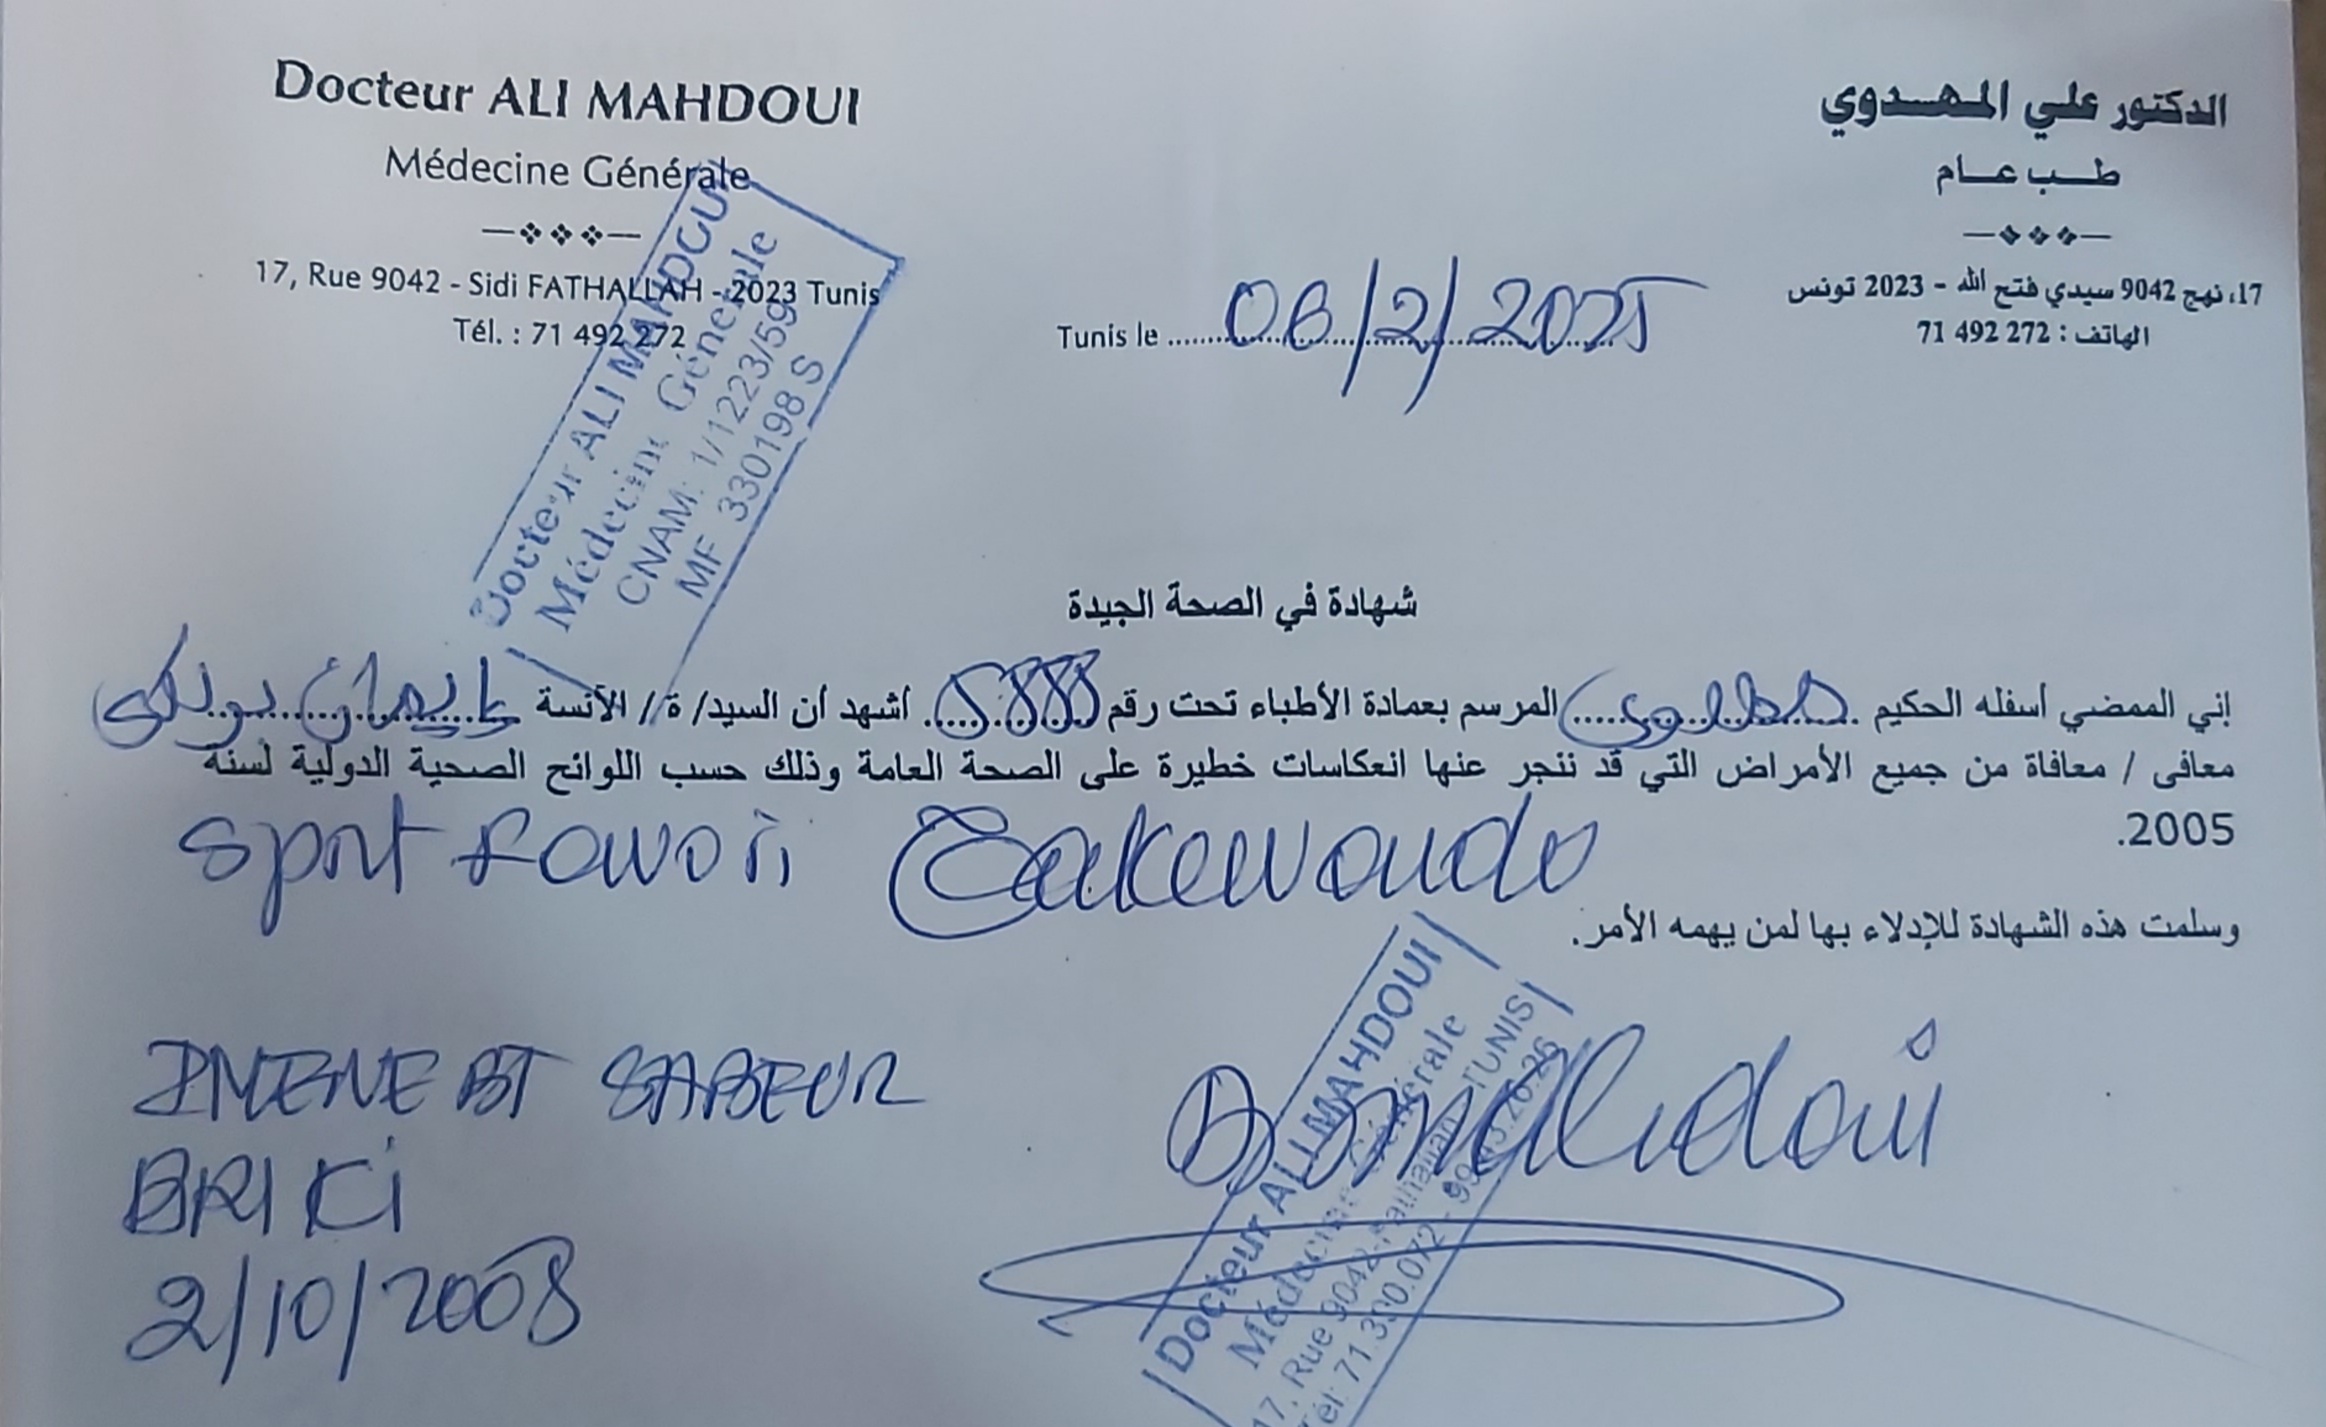 Docteur ALI MAHDOUI
Médecine Générale
17, Rue 9042 - Sidi FATHALLAH - 2023 Tunis
Tél. : 71 492 272
الدكتور علي المهدوي
طب عام
17، نهج 9042 سيدي فتح الله - 2023 تونس
الهاتف : 272 492 71
Tunis le 06/2/2025
Docteur ALI MAHDOUI
Médecine Générale
CNAM: 1/1223/59
MF 330198 S
شهادة في الصحة الجيدة
إني الممضي أسفله الحكيم المرسم بعمادة الأطباء تحت رقم أشهد أن السيد/ ة/ الآنسة
معافى / معافاة من جميع الأمراض التي قد ننجر عنها انعكاسات خطيرة على الصحة العامة وذلك حسب اللوائح الصحية الدولية لسنة
2005.
Sport Favori Taekewondo
وسلمت هذه الشهادة للإدلاء بها لمن يهمه الأمر.
IMENE BT SABEUR
BRIKI
2/10/2008
Dr mahdoui
Docteur ALI MAHDOUI
Médecine Générale
17, Rue 9042, Fathallah TUNIS